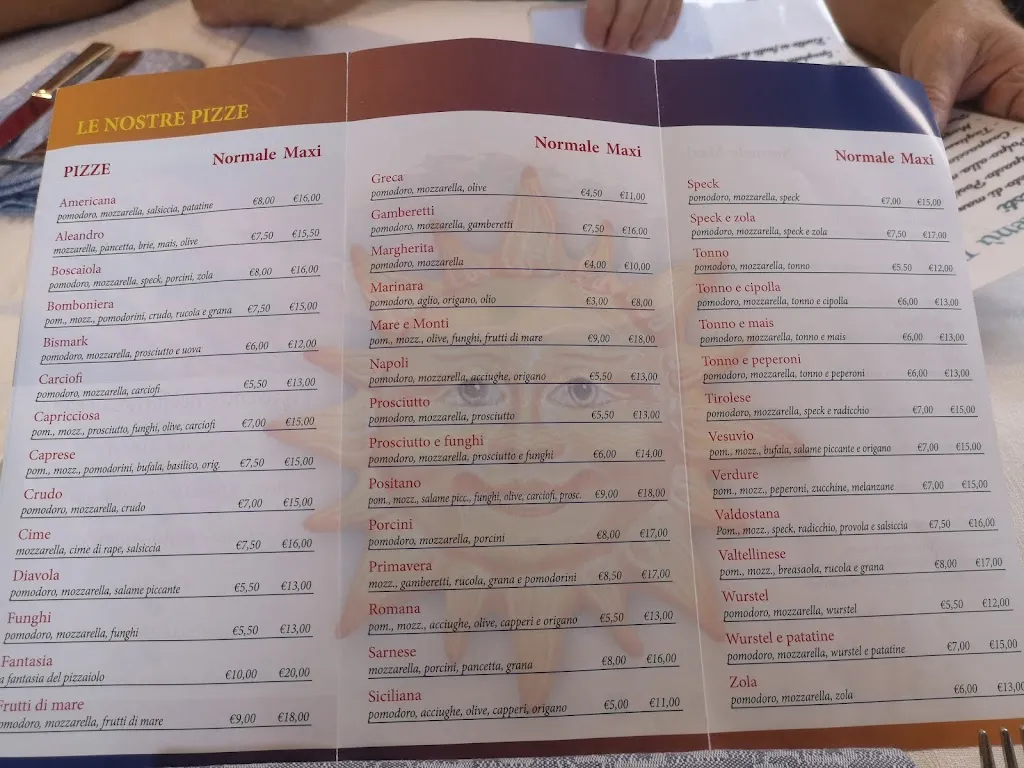 LE NOSTRE PIZZE
PIZZE
Normale Maxi
Americana
pomodoro, mozzarella, salsiccia, patatine €8,00 €16,00
Aleandro
mozzarella, pancetta, brie, mais, olive €7,50 €15,50
Boscaiola
pomodoro, mozzarella, speck, porcini, zola €8,00 €16,00
Bomboniera
pom., mozz., pomodorini, crudo, rucola e grana €7,50 €15,00
Bismark
pomodoro, mozzarella, prosciutto e uova €6,00 €12,00
Carciofi
pomodoro, mozzarella, carciofi €5,50 €13,00
Capricciosa
pom., mozz., prosciutto, funghi, olive, carciofi €7,00 €15,00
Caprese
pom., mozz., pomodorini, bufala, basilico, orig. €7,50 €15,00
Crudo
pomodoro, mozzarella, crudo €7,00 €15,00
Cime
mozzarella, cime di rape, salsiccia €7,50 €16,00
Diavola
pomodoro, mozzarella, salame piccante €5,50 €13,00
Funghi
pomodoro, mozzarella, funghi €5,50 €13,00
Fantasia
a fantasia del pizzaiolo €10,00 €20,00
Frutti di mare
omodoro, mozzarella, frutti di mare €9,00 €18,00
Normale Maxi
Greca
pomodoro, mozzarella, olive €4,50 €11,00
Gamberetti
pomodoro, mozzarella, gamberetti €7,50 €16,00
Margherita
pomodoro, mozzarella €4,00 €10,00
Marinara
pomodoro, aglio, origano, olio €3,00 €8,00
Mare e Monti
pom., mozz., olive, funghi, frutti di mare €9,00 €18,00
Napoli
pomodoro, mozzarella, acciughe, origano €5,50 €13,00
Prosciutto
pomodoro, mozzarella, prosciutto €5,50 €13,00
Prosciutto e funghi
pomodoro, mozzarella, prosciutto e funghi €6,00 €14,00
Positano
pom., mozz., salame picc., funghi, olive, carciofi, prosc. €9,00 €18,00
Porcini
pomodoro, mozzarella, porcini €8,00 €17,00
Primavera
mozz., gamberetti, rucola, grana e pomodorini €8,50 €17,00
Romana
pom., mozz., acciughe, olive, capperi e origano €5,50 €13,00
Sarnese
mozzarella, porcini, pancetta, grana €8,00 €16,00
Siciliana
pomodoro, acciughe, olive, capperi, origano €5,00 €11,00
Normale Maxi
Speck
pomodoro, mozzarella, speck €7,00 €15,00
Speck e zola
pomodoro, mozzarella, speck e zola €7,50 €17,00
Tonno
pomodoro, mozzarella, tonno €5,50 €12,00
Tonno e cipolla
pomodoro, mozzarella, tonno e cipolla €6,00 €13,00
Tonno e mais
pomodoro, mozzarella, tonno e mais €6,00 €13,00
Tonno e peperoni
pomodoro, mozzarella, tonno e peperoni €6,00 €13,00
Tirolese
pomodoro, mozzarella, speck e radicchio €7,00 €15,00
Vesuvio
pom., mozz., bufala, salame piccante e origano €7,00 €15,00
Verdure
pom., mozz., peperoni, zucchine, melanzane €7,00 €15,00
Valdostana
Pom., mozz., speck, radicchio, provola e salsiccia €7,50 €16,00
Valtellinese
pom., mozz., breasaola, rucola e grana €8,00 €17,00
Wurstel
pomodoro, mozzarella, wurstel €5,50 €12,00
Wurstel e patatine
pomodoro, mozzarella, wurstel e patatine €7,00 €15,00
Zola
pomodoro, mozzarella, zola €6,00 €13,00